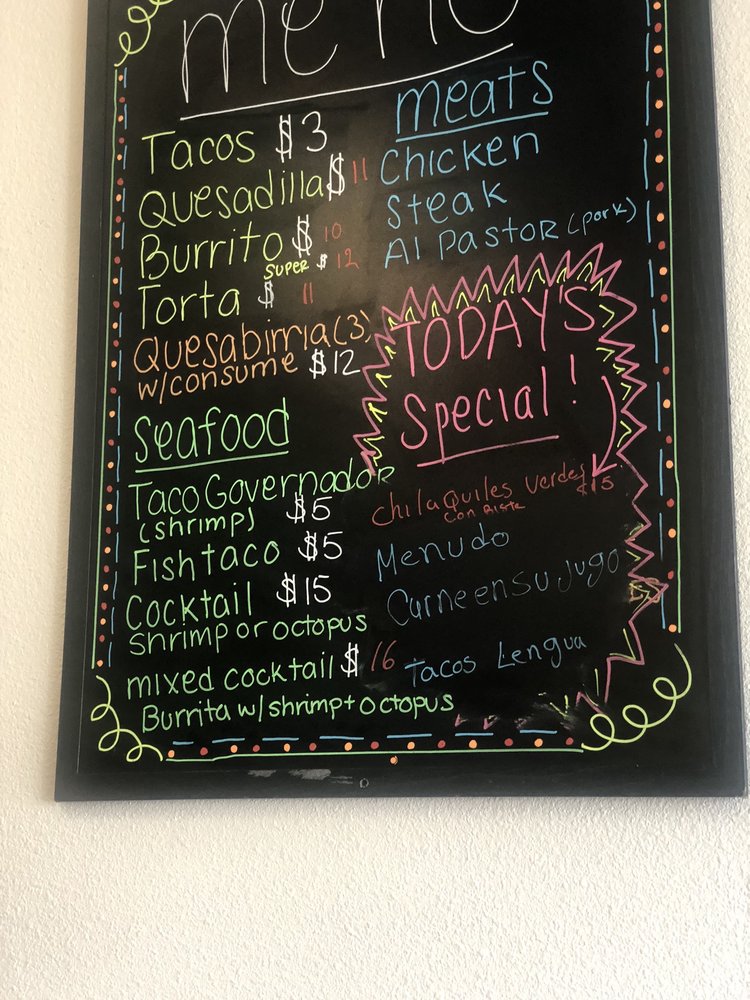 menu
Tacos $3
Quesadilla $11
Burrito $10
super $12
Torta $11
Quesabirria (3)
w/consume $12
Seafood
Taco Governador
(shrimp) $5
Fish taco $5
Cocktail $15
shrimp or octopus
mixed cocktail $16
Burrita w/shrimp + octopus
meats
Chicken
Steak
Al Pastor (pork)
TODAY'S
Special!
Chilaquiles Verdes $15
con Biste
Menudo
Carne en su jugo
Tacos Lengua